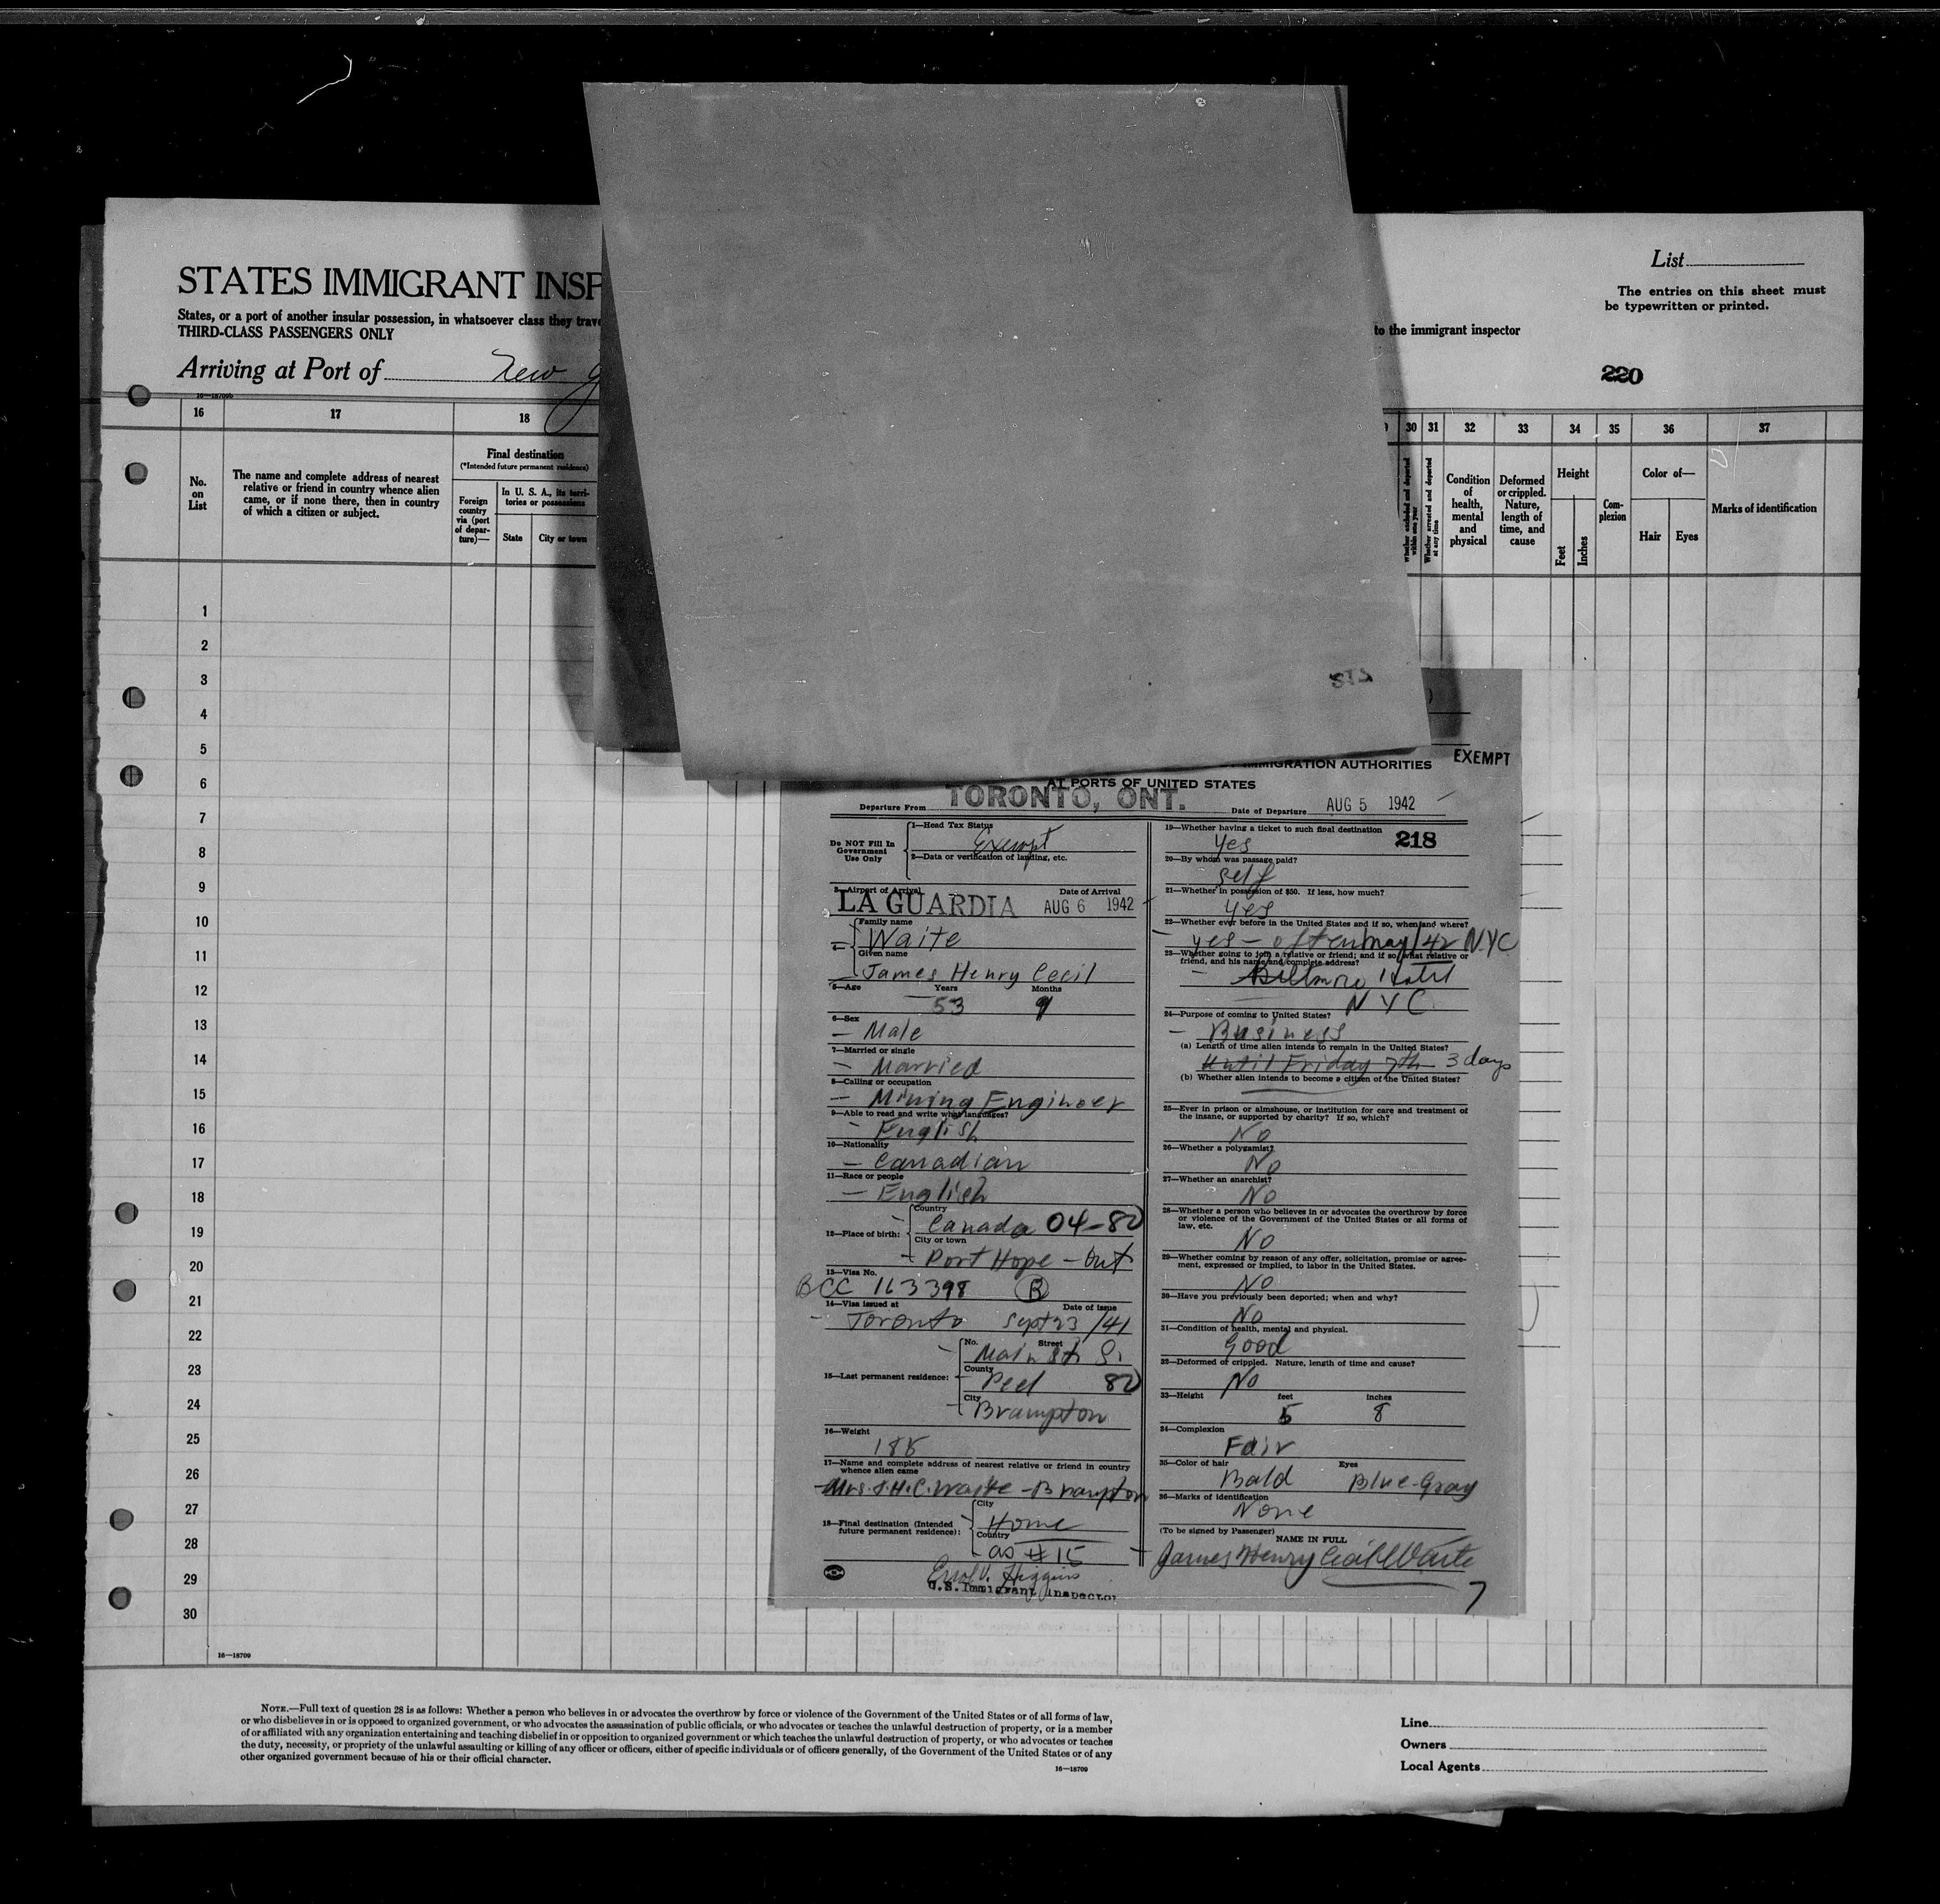 STATES IMMIGRANT INSP
States, or a port of another insular possession, in whatsoever class they trave
THIRD-CLASS PASSENGERS ONLY
Arriving at Port of New Y
16—18709b
List
The entries on this sheet must
be typewritten or printed.
to the immigrant inspector
220
16 17 18
No. on List
The name and complete address of nearest
relative or friend in country whence alien
came, or if none there, then in country
of which a citizen or subject.
Final destination
(*Intended future permanent residence)
Foreign country via (port of departure)—
In U. S. A., its territories or possessions
State City or town
30 31 32 33 34 35 36 37
Whether excluded and deported within one year
Whether arrested and deported at any time
Condition of health, mental and physical
Deformed or crippled. Nature, length of time, and cause
Height
Feet Inches
Complexion
Color of—
Hair Eyes
Marks of identification
1
2
3
4
5
6
7
8
9
10
11
12
13
14
15
16
17
18
19
20
21
22
23
24
25
26
27
28
29
30
16—18709
IMMIGRATION AUTHORITIES
EXEMPT
AT PORTS OF UNITED STATES
Departure From TORONTO, ONT. Date of Departure AUG 5 1942
Do NOT Fill In
Government
Use Only
1—Head Tax Status
Exempt
2—Data or verification of landing, etc.
3—Airport of Arrival Date of Arrival
LA GUARDIA AUG 6 1942
4—
Family name
Waite
Given name
James Henry Cecil
5—Age Years Months
53 9
6—Sex
Male
7—Married or single
Married
8—Calling or occupation
Mining Engineer
9—Able to read and write what languages?
English
10—Nationality
Canadian
11—Race or people
English
12—Place of birth:
Country
Canada 04-82
City or town
Port Hope - Ont
13—Visa No.
BCC 163398 R
14—Visa issued at Date of Issue
Toronto Sept 23/41
15—Last permanent residence:
No. Street
Main St S.
County
Peel 82
City
Brampton
16—Weight
185
17—Name and complete address of nearest relative or friend in country
whence alien came
Mrs. J.H.C. Waite - Brampton
18—Final destination (Intended
future permanent residence):
City
Home
Country
as #15
Errol V. Higgins
U.S. Immigrant Inspector
19—Whether having a ticket to such final destination
Yes 218
20—By whom was passage paid?
Self
21—Whether in possession of $50. If less, how much?
Yes
22—Whether ever before in the United States and if so, when and where?
yes - often May/42 NYC
23—Whether going to join a relative or friend; and if so, what relative or
friend, and his name and complete address?
Biltmore Hotel
NYC
24—Purpose of coming to United States?
Business
(a) Length of time alien intends to remain in the United States?
Until Friday 7th 3 days
(b) Whether alien intends to become a citizen of the United States?
25—Ever in prison or almshouse, or institution for care and treatment of
the insane, or supported by charity? If so, which?
No
26—Whether a polygamist?
No
27—Whether an anarchist?
No
28—Whether a person who believes in or advocates the overthrow by force
or violence of the Government of the United States or all forms of
law, etc.
No
29—Whether coming by reason of any offer, solicitation, promise or agree-
ment, expressed or implied, to labor in the United States.
No
30—Have you previously been deported; when and why?
No
31—Condition of health, mental and physical.
Good
32—Deformed or crippled. Nature, length of time and cause?
No
33—Height feet inches
5 8
34—Complexion
Fair
35—Color of hair Eyes
Bald Blue-Gray
36—Marks of identification
None
(To be signed by Passenger)
NAME IN FULL
James Henry Cecil Waite
7
NOTE.—Full text of question 28 is as follows: Whether a person who believes in or advocates the overthrow by force or violence of the Government of the United States or of all forms of law,
or who disbelieves in or is opposed to organized government, or who advocates the assassination of public officials, or who advocates or teaches the unlawful destruction of property, or is a member
of or affiliated with any organization entertaining and teaching disbelief in or opposition to organized government or which teaches the unlawful destruction of property, or who advocates or teaches
the duty, necessity, or propriety of the unlawful assaulting or killing of any officer or officers, either of specific individuals or of officers generally, of the Government of the United States or of any
other organized government because of his or their official character.
16—18709
Line
Owners
Local Agents